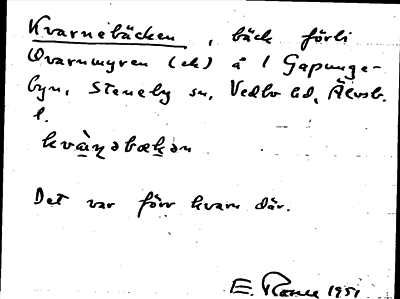 Kvarnebäcken, bäck förbi
Qvarnmyren (ek) å / Gapunge-
byn, Steneby sn, Vedbo hd, Älvsb.
l.
kvàṇəbækən
Det var förr kvarn där.
E. 1951